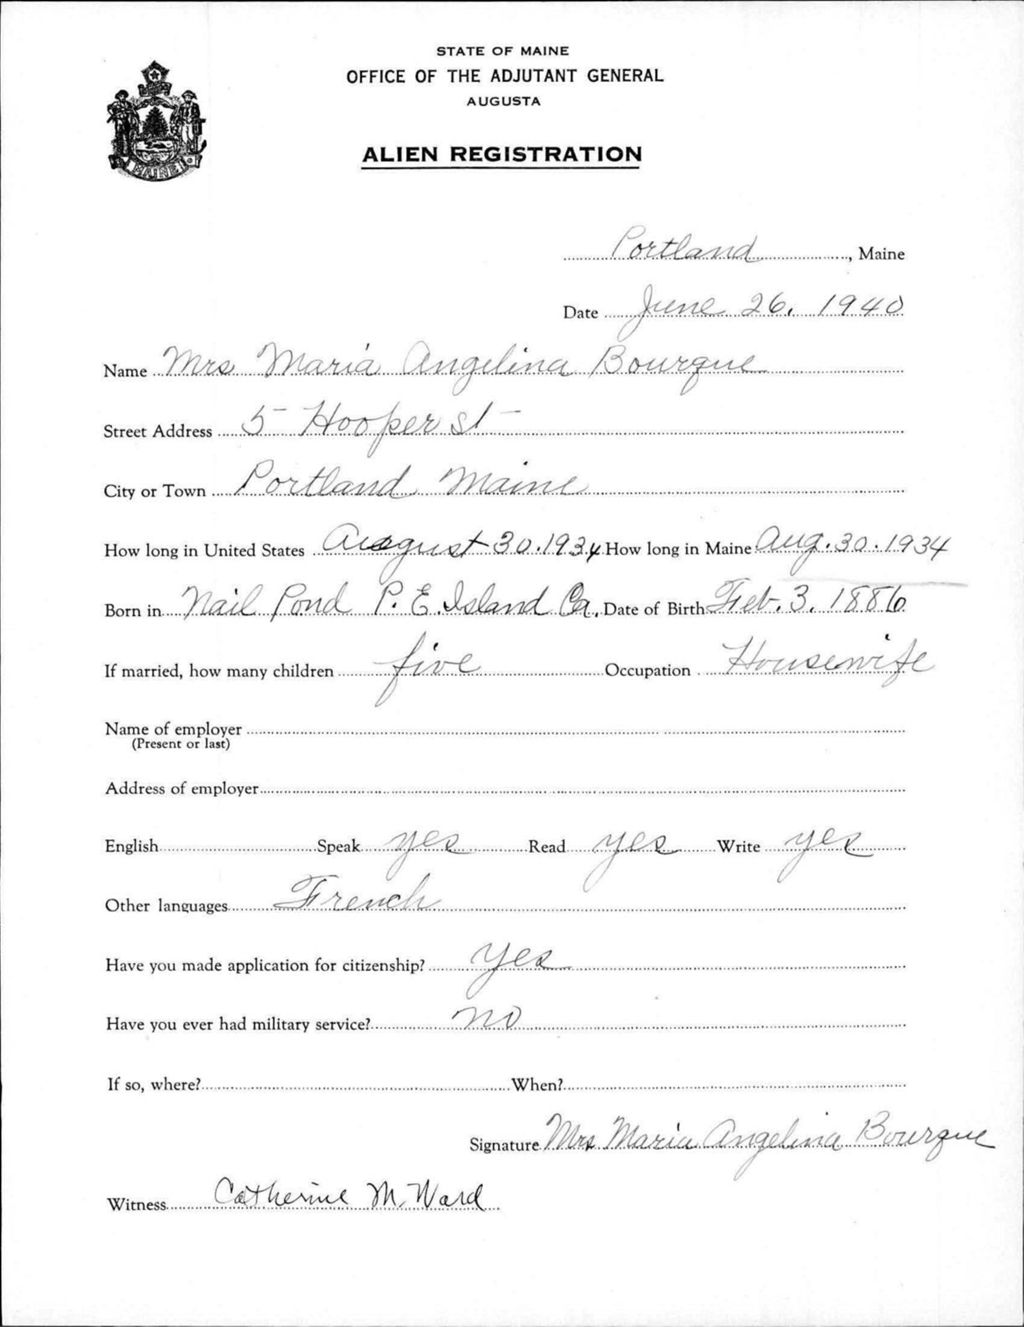 STATE OF MAINE
OFFICE OF THE ADJUTANT GENERAL
AUGUSTA
ALIEN REGISTRATION
MAINE
Portland, Maine
Date June 26, 1940
Name Mrs Maria Angelina Bourque
Street Address 5 Hooper St
City or Town Portland Maine
How long in United States August 30.1934 How long in Maine Aug. 30. 1934
Born in Nail Pond P. E. Island Ca, Date of Birth Feb. 3. 1886
If married, how many children five Occupation Housewife
Name of employer
(Present or last)
Address of employer
English Speak yes Read yes Write yes
Other languages French
Have you made application for citizenship? Yes
Have you ever had military service? no
If so, where? When?
Signature Mrs Maria Angelina Bourque
Witness Catherine M. Ward